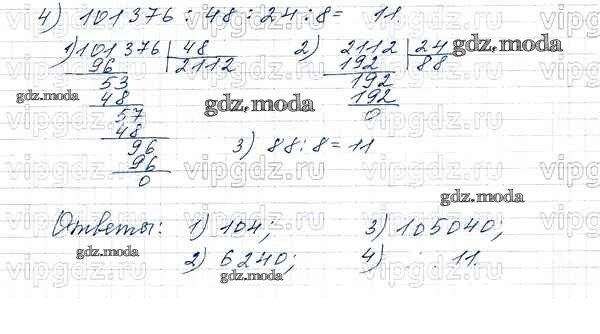 4) 101376 : 48 : 24 : 8 = 11
1) 101376 | 48
96 2112
53
48
57
48
96
96
0
2) 2112 | 24
192 88
192
192
0
3) 88 : 8 = 11
Ответы: 1) 104; 3) 105040;
2) 6240; 4) 11.
gdz.moda
gdz.moda
gdz.moda
gdz.moda
gdz.moda
gdz.moda
gdz.moda
vipgdz.ru
vipgdz.ru
vipgdz.ru
vipgdz.ru
vipgdz.ru
vipgdz.ru